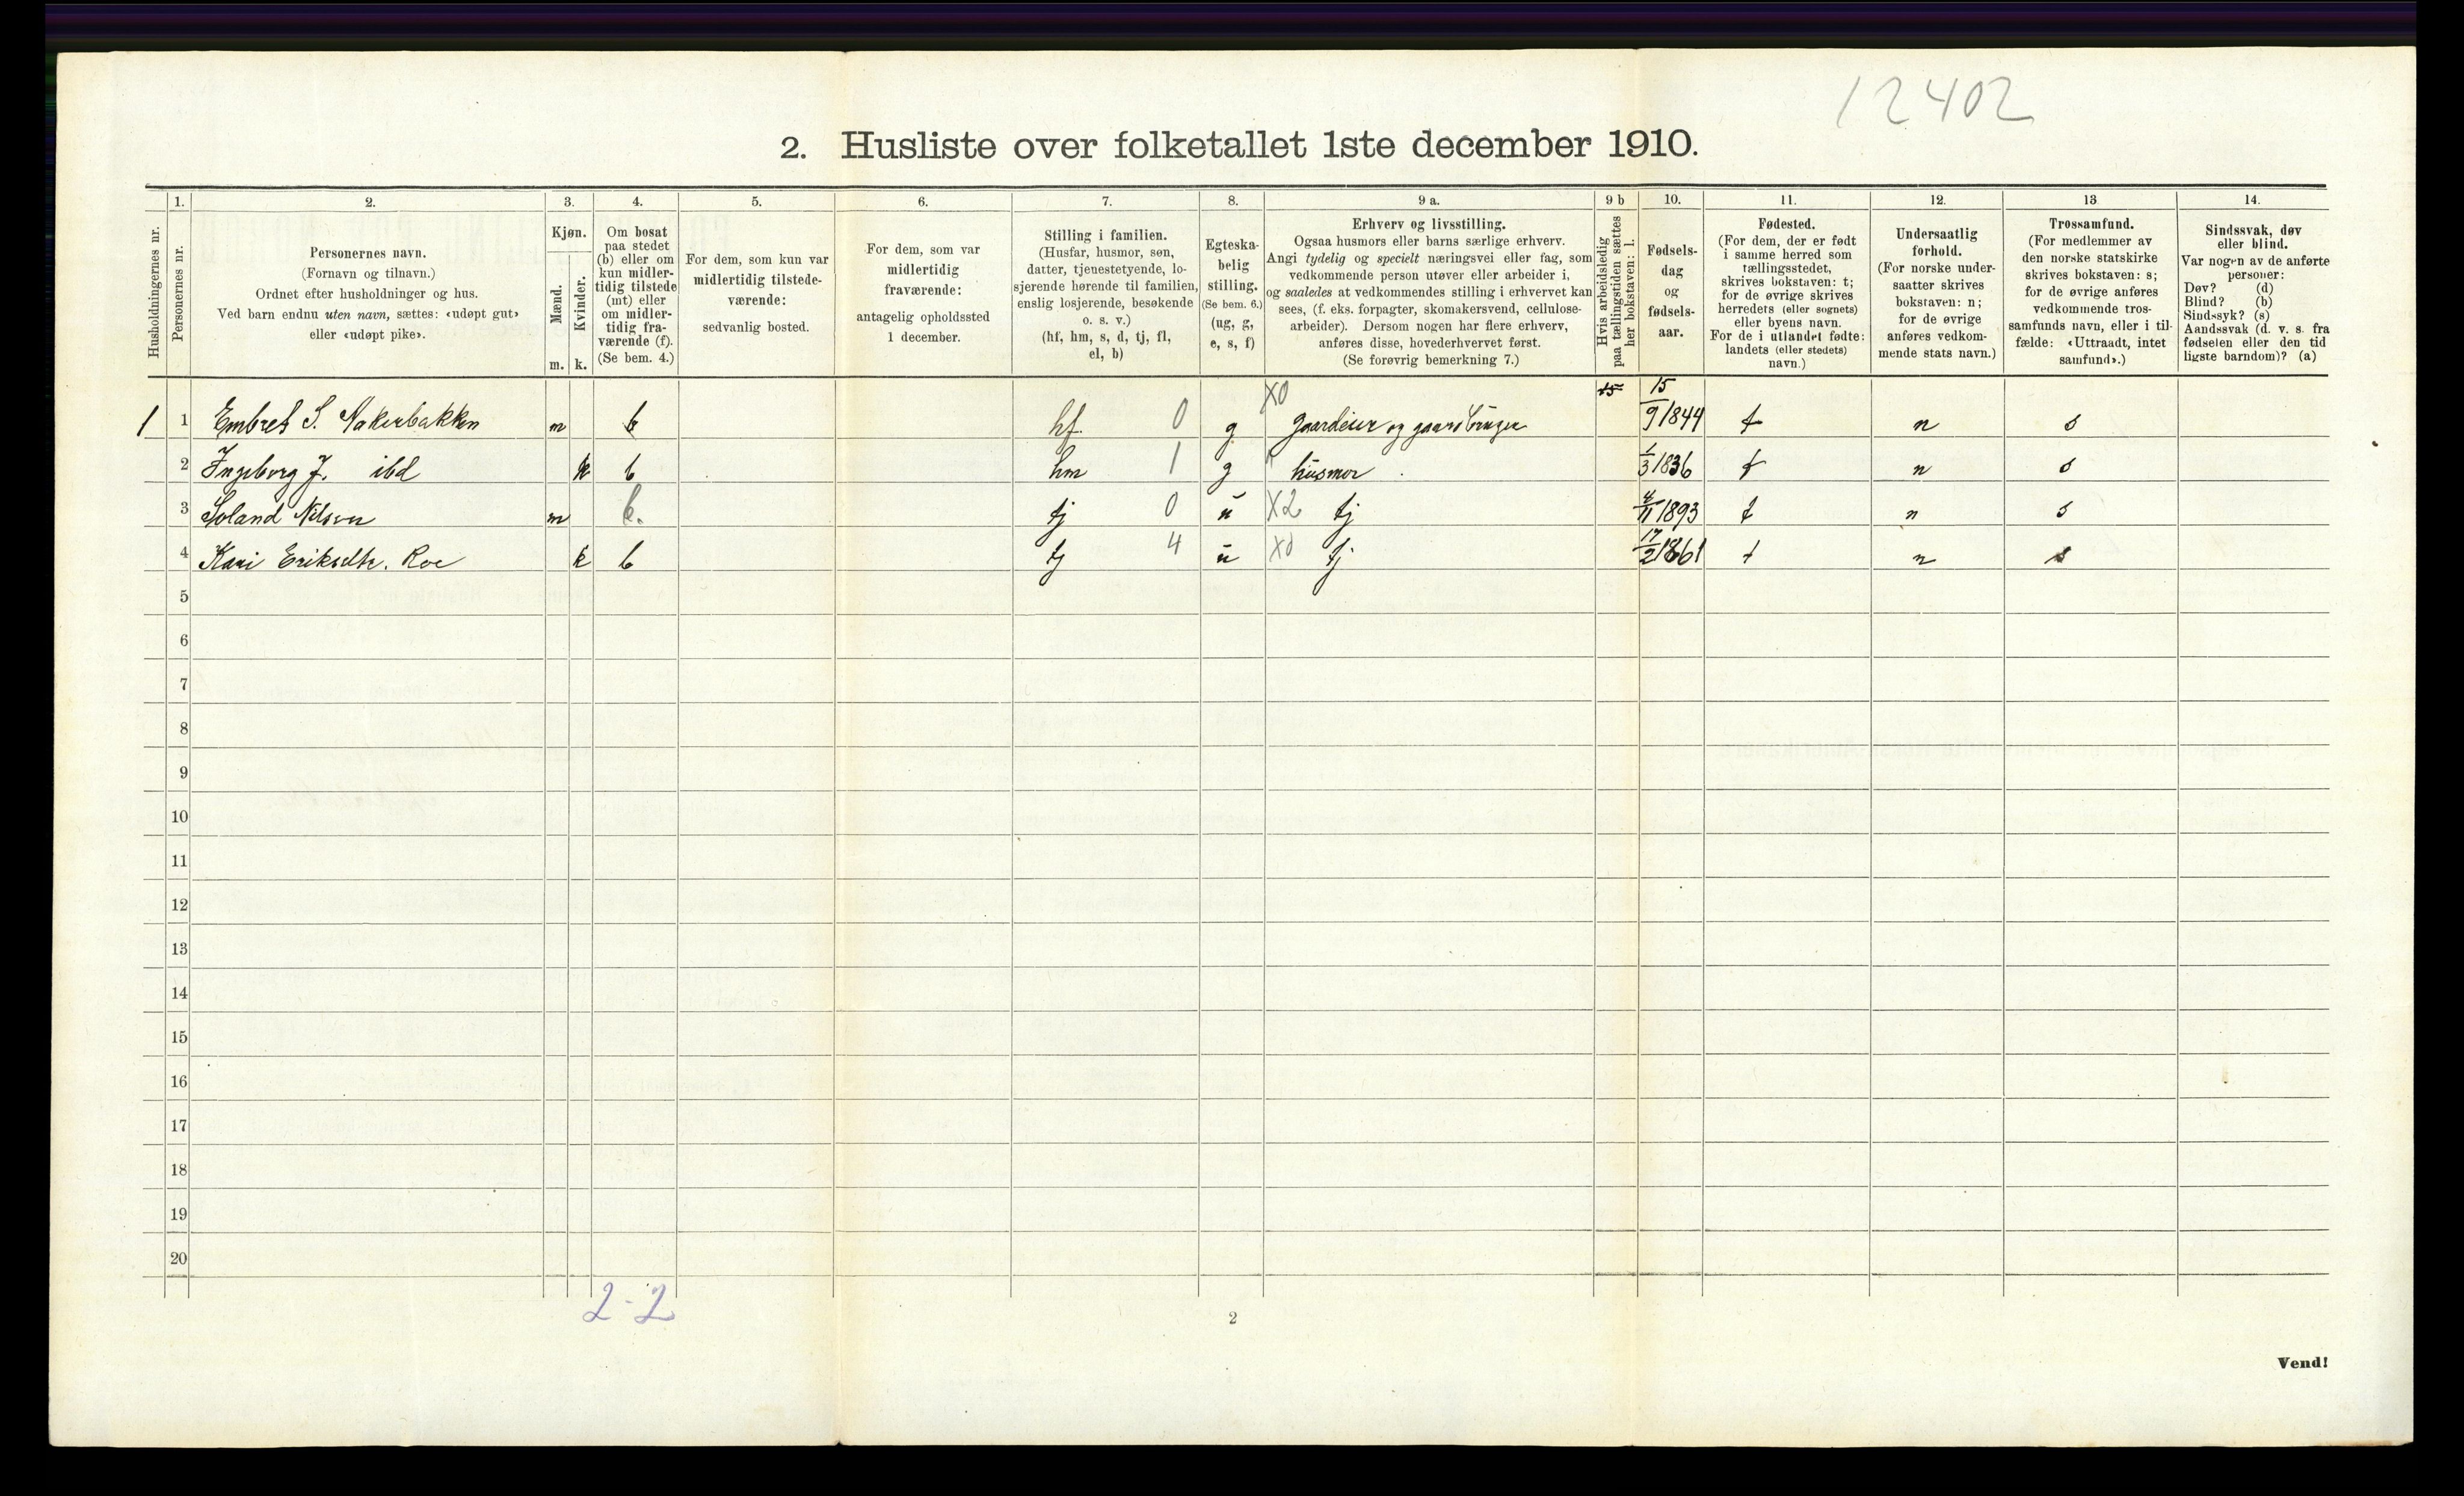 12402
2. Husliste over folketallet 1ste december 1910.
Husholdningernes nr.
1.
Personernes nr.
2.
Personernes navn.
(Fornavn og tilnavn.)
Ordnet efter husholdninger og hus.
Ved barn endnu uten navn, sættes: «udøpt gut»
eller «udøpt pike».
3.
Kjøn.
Mænd.
Kvinder.
m. k.
4.
Om bosat
paa stedet
(b) eller om
kun midler-
tidig tilstede
(mt) eller
om midler-
tidig fra-
værende (f).
(Se bem. 4.)
5.
For dem, som kun var
midlertidig tilstede-
værende:
sedvanlig bosted.
6.
For dem, som var
midlertidig
fraværende:
antagelig opholdssted
1 december.
7.
Stilling i familien.
(Husfar, husmor, søn,
datter, tjenestetyende, lo-
sjerende hørende til familien,
enslig losjerende, besøkende
o. s. v.)
(hf, hm, s, d, tj, fl,
el, b)
8.
Egteska-
belig
stilling.
(Se bem. 6.)
(ug, g,
e, s, f)
9 a.
Erhverv og livsstilling.
Ogsaa husmors eller barns særlige erhverv.
Angi tydelig og specielt næringsvei eller fag, som
vedkommende person utøver eller arbeider i,
og saaledes at vedkommendes stilling i erhvervet kan
sees, (f. eks. forpagter, skomakersvend, cellulose-
arbeider). Dersom nogen har flere erhverv,
anføres disse, hovederhvervet først.
(Se forøvrig bemerkning 7.)
9 b
Hvis arbeidsledig
paa tællingstiden sættes
her bokstaven: l.
10.
Fødsels-
dag
og
fødsels-
aar.
11.
Fødested.
(For dem, der er født
i samme herred som
tællingsstedet,
skrives bokstaven: t;
for de øvrige skrives
herredets (eller sognets)
eller byens navn.
For de i utlandet fødte:
landets (eller stedets)
navn.)
12.
Undersaatlig
forhold.
(For norske under-
saatter skrives
bokstaven: n;
for de øvrige
anføres vedkom-
mende stats navn.)
13
Trossamfund.
(For medlemmer av
den norske statskirke
skrives bokstaven: s;
for de øvrige anføres
vedkommende tros-
samfunds navn, eller i til-
fælde: «Uttraadt, intet
samfund».)
14.
Sindssvak, døv
eller blind.
Var nogen av de anførte
personer:
Døv? (d)
Blind? (b)
Sindssyk? (s)
Aandssvak (d. v. s. fra
fødselen eller den tid
ligste barndom)? (a)
1 1 Embret S. Nakerbakken m b hf. 0 g X0 gaardeier og gaardbruger 15 15/9 1844 t n s
2 Ingeborg J. ibd k b hm 1 g husmor 1/3 1836 t n s
3 Soland Nilsen m b. tj 0 u X2 tj 4/11 1893 t n s
4 Kari Eriksdtr. Roe k b tj 4 u X0 tj 17/2 1861 t n s
5
6
7
8
9
10
11
12
13
14
15
16
17
18
19
20
2-2
2
Vend!